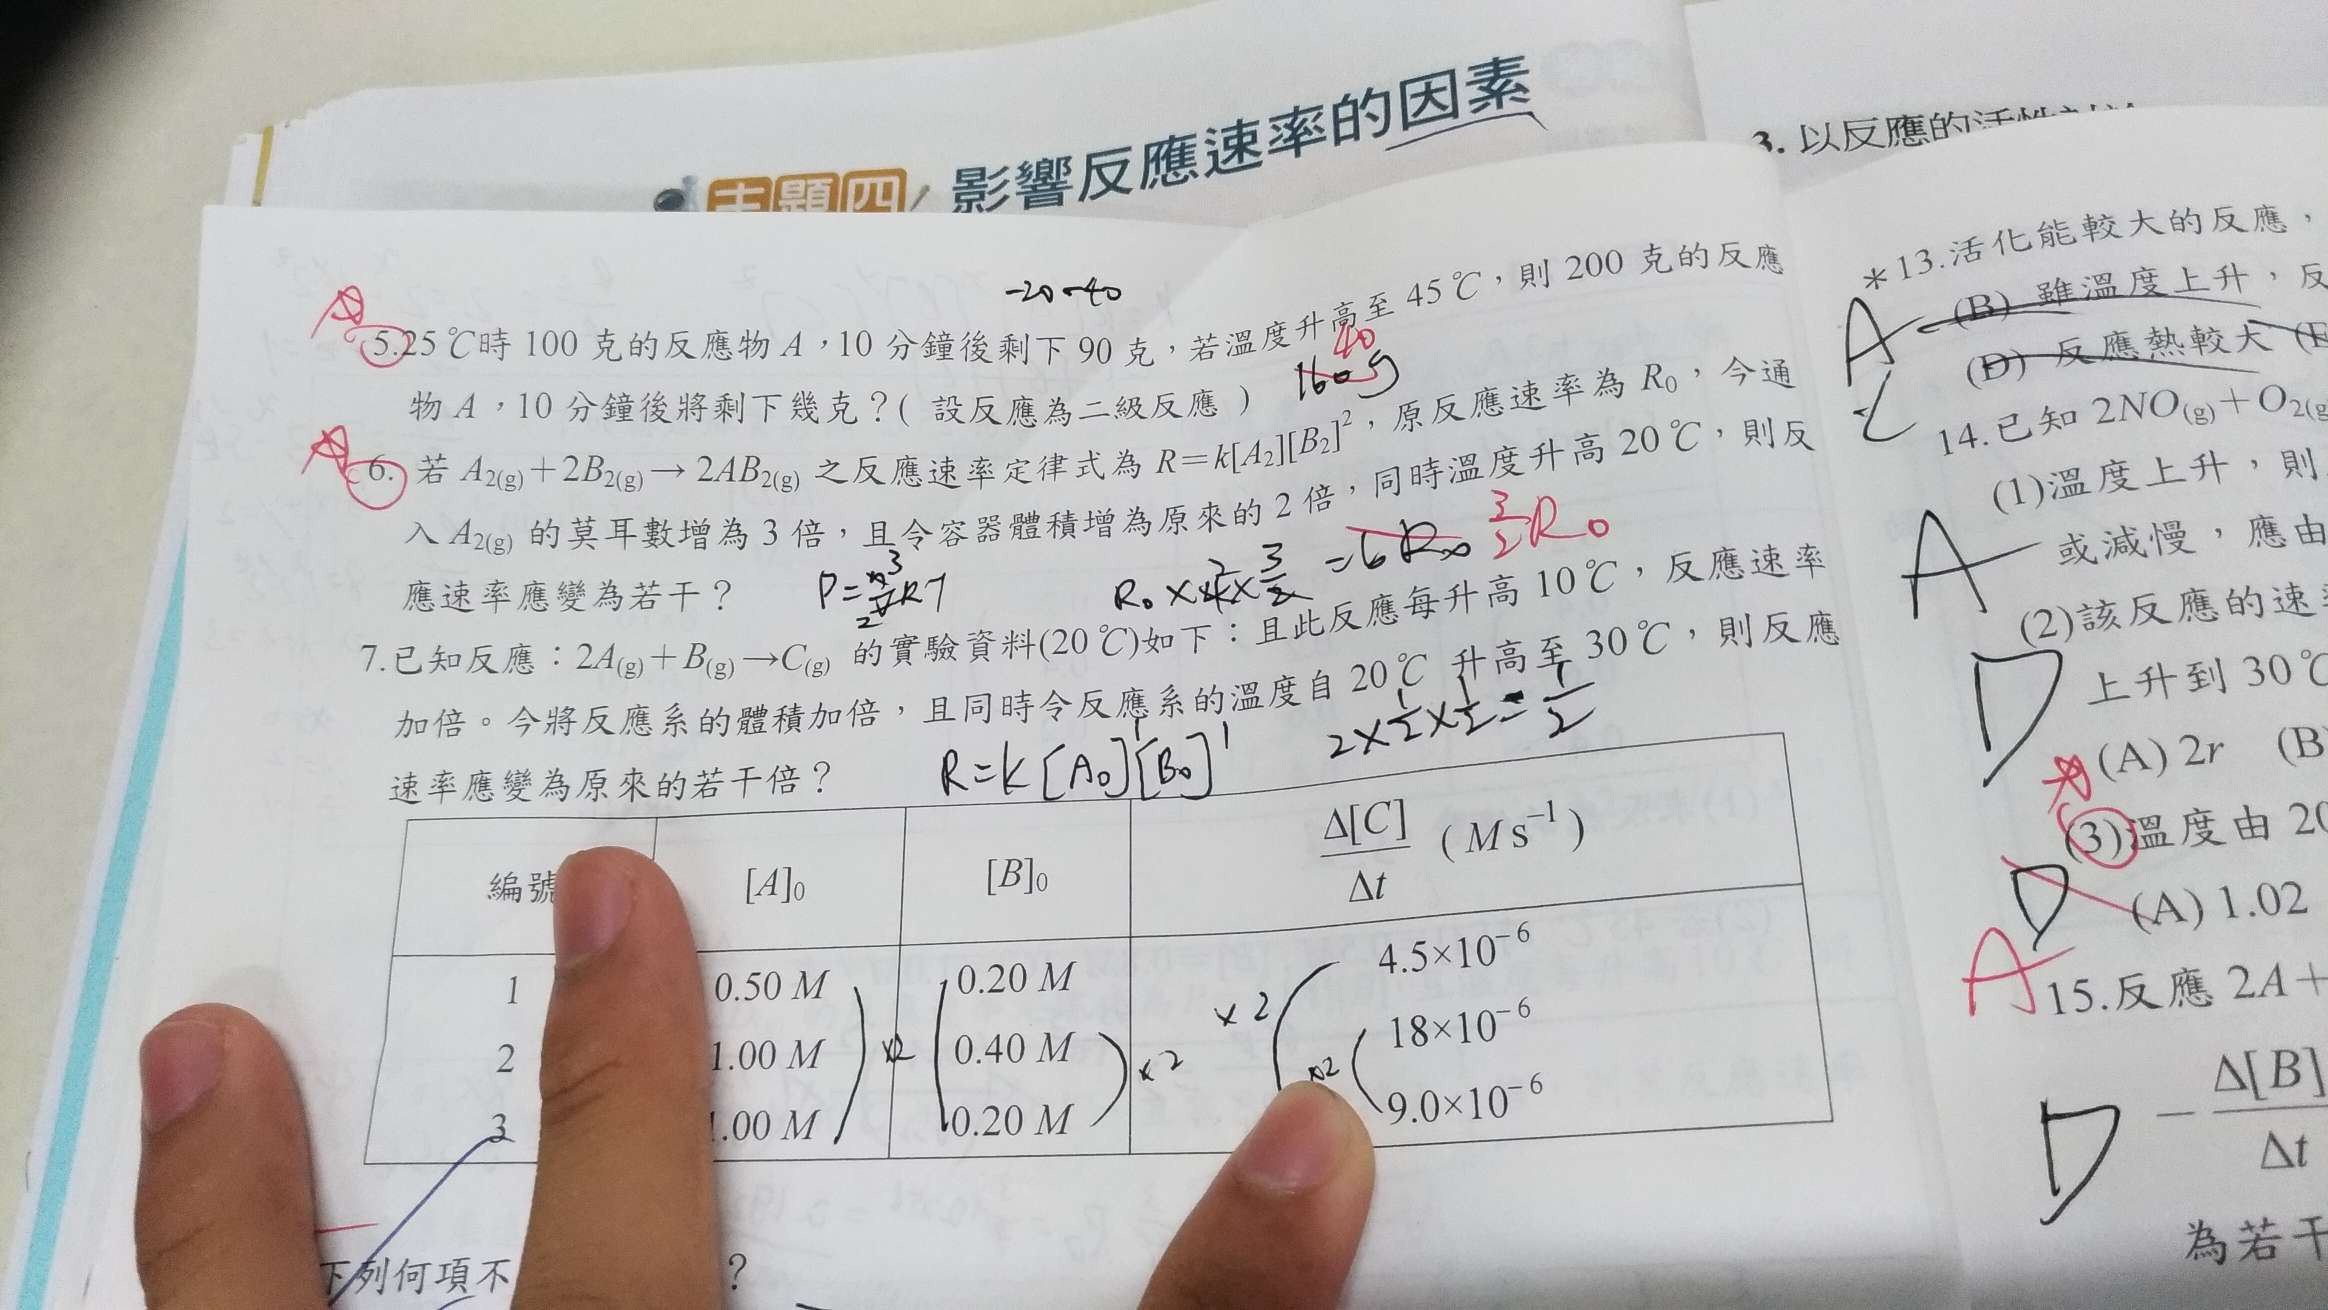 主題四 影響反應速率的因素
-20 -40
5.25℃時 100 克的反應物 A，10 分鐘後剩下 90 克，若溫度升高至 45℃，則 200 克的反應
40
160g
物 A，10 分鐘後將剩下幾克？( 設反應為二級反應 )
6. 若 A2(g)+2B2(g)→2AB2(g) 之反應速率定律式為 R=k[A2][B2]²，原反應速率為 R0，今通
入 A2(g) 的莫耳數增為 3 倍，且令容器體積增為原來的 2 倍，同時溫度升高 20℃，則反
=6R0 3/2 R0
應速率應變為若干？
7.已知反應：2A(g)+B(g)→C(g) 的實驗資料(20℃)如下：且此反應每升高 10℃，反應速率
加倍。今將反應系的體積加倍，且同時令反應系的溫度自 20℃ 升高至 30℃，則反應
速率應變為原來的若干倍？
R=k[A0]¹[B0]¹
2×1/2×1/2=1/2
編號 [A]0 [B]0 Δ[C]/Δt (M s⁻¹)
1 0.50 M 0.20 M 4.5×10⁻⁶
2 1.00 M 0.40 M 18×10⁻⁶
3 .00 M 0.20 M 9.0×10⁻⁶
×2 ×2 ×2 ×2
下列何項不
？
3. 以反應的活性
*13.活化能較大的反應，
A
(B) 雖溫度上升，反
(D) 反應熱較大 (E
14.已知 2NO(g)+O2(g
(1)溫度上升，則
A
或減慢，應由
(2)該反應的速
D
上升到 30℃
(A) 2r (B)
(3)溫度由 20
D
(A) 1.02
A
15.反應 2A+
D
－Δ[B]/Δt
為若干